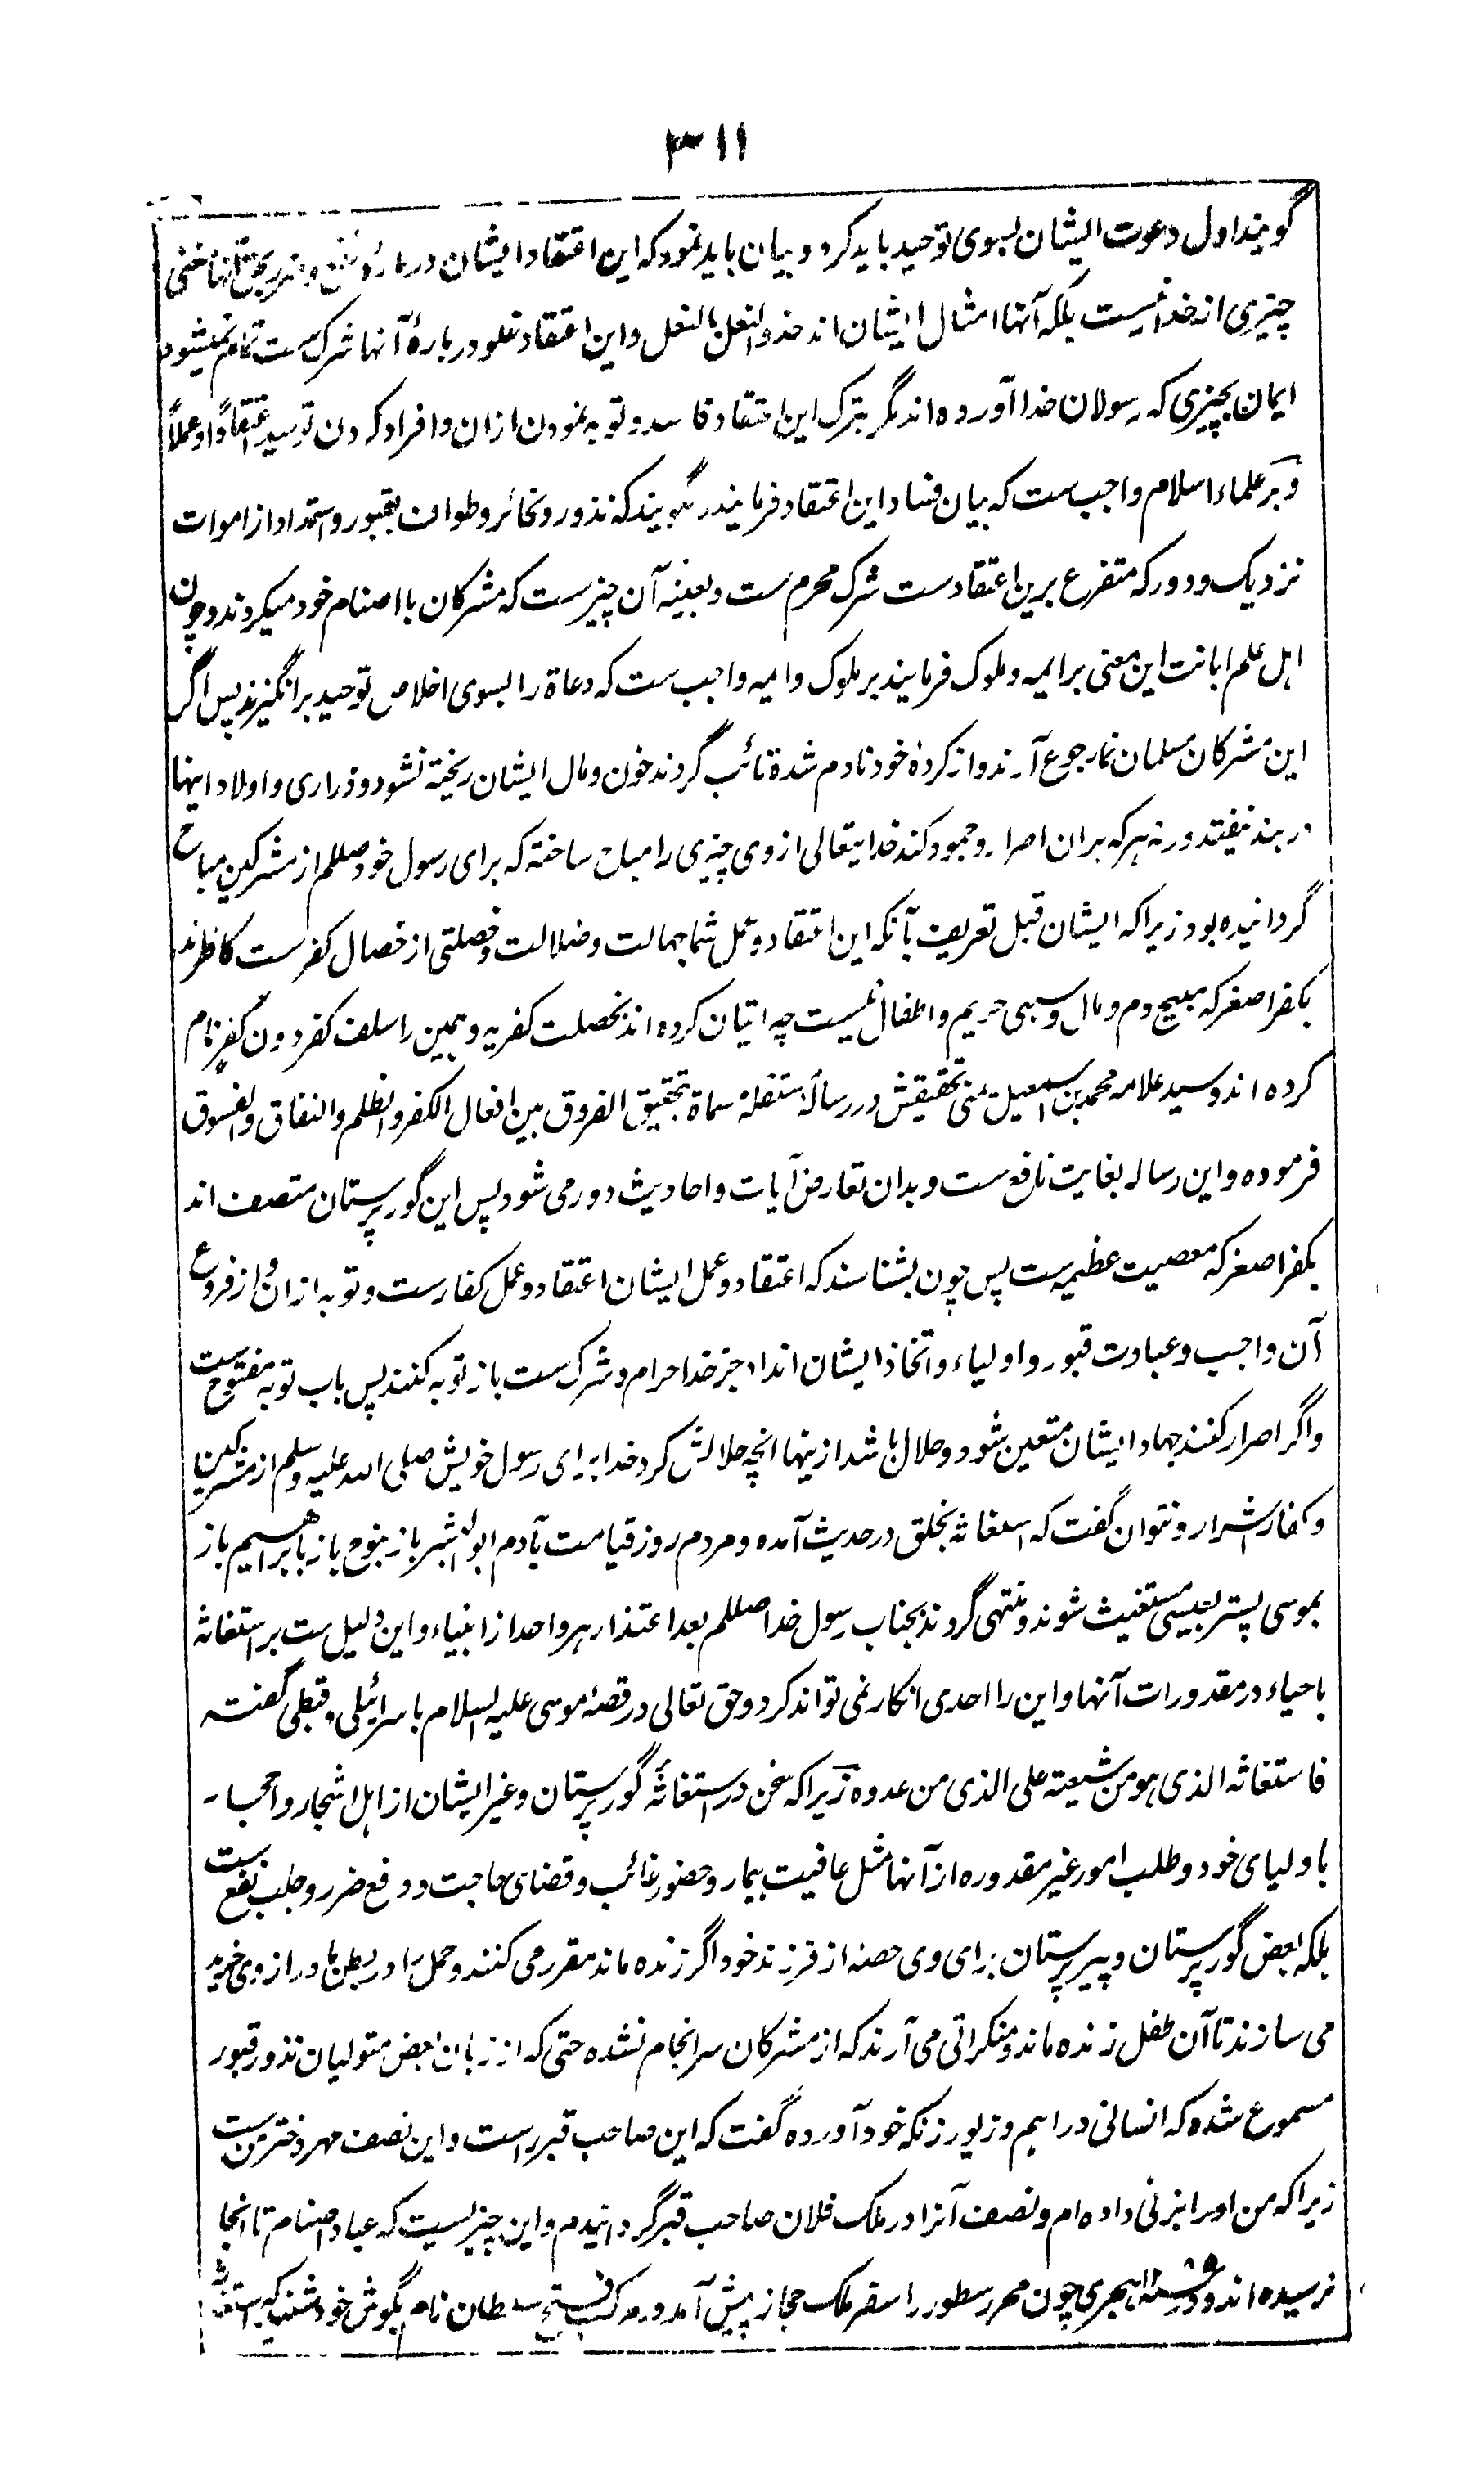 ۳۱۱
گویند اول دعوت ایشان بسوی توحید باید کرد و بیان باید نمود که این اعتقاد ایشان در بارهٔ
چیزی از خدا نیست بلکه آنها امثال ایشان اند حذو النعل بالنعل و این اعتقاد غلو در بارهٔ آنها شرک ست تمام نمیشود
ایمان بچیزی که رسولان خدا آورده اند مگر بترک این اعتقاد فاسد و توبه نمودن ازان و افراد کردن توحید اعتقاداً و عملاً
و بر علماء اسلام واجب ست که بیان فساد این اعتقاد فرمایند و گویند که نذور و نحائر و طواف بقبور و استمداد از اموات
نزدیک و دور که متفرع برین اعتقاد ست شرک محرم ست و بعینه آن چیز ست که مشرکان با اصنام خود میکردند و چون
اهل علم ابانت این معنی بر ایمه و ملوک فرمایند بر ملوک و ایمه واجب ست که دعاة را بسوی اخلاص توحید برانگیزند پس اگر
این مشرکان مسلمان نما رجوع آرند و از کردهٔ خود نادم شده تائب گردند خون و مال ایشان ریخته نشود و ذراری و اولاد اینها
در بند نیفتد ورنه هر که بران اصرار و جمود کند خدایتعالی از وی چیزی را مباح ساخته که برای رسول خود صللم از مشرکین مباح
گردانیده بود زیرا که ایشان قبل تعریف بآنکه این اعتقاد و عمل شما جهالت و ضلالت و خصلتی از خصال کفر ست کافر اند
بکفر اصغر که مبیح دم و مال و سبی حریم و اطفال نیست چه اتیان کرده اند بخصلت کفریه و همین را سلف کفر دون کفر نام
کرده اند و سید علامه محمد بن اسمعیل تحقیقش در رسالهٔ مستقلهٔ مسماة بتحقیق الفروق بین افعال الکفر و الظلم و النفاق و الفسوق
فرموده و این رساله بغایت نافع ست و بدان تعارض آیات و احادیث دور می شود پس این گور پرستان متصف اند
بکفر اصغر که معصیت عظیمه ست پس چون بشناسند که اعتقاد و عمل ایشان اعتقاد و عمل کفار ست و توبه ازان و از فروع
آن واجب و عبادت قبور و اولیاء و اتخاذ ایشان انداد جز خدا حرام و شرک ست باز توبه کنند پس باب توبه مفتوح ست
و اگر اصرار کنند جهاد ایشان متعین شود و حلال باشد ازینها انچه حلالش کرد خدا برای رسول خویش صلی الله علیه وسلم از مشرکین
و کفار اشرار و نتوان گفت که استغاثه بخلق در حدیث آمده و مردم روز قیامت بآدم ابو البشر باز بنوح باز بابراهیم باز
بموسی پستر بعیسی مستغیث شوند و منتهی گردند بجناب رسول خدا صللم بعد اعتذار هر واحد از انبیاء و این دلیل ست بر استغاثه
باحیاء در مقدورات آنها و این را احدی انکار نمی تواند کرد و حق تعالی در قصهٔ موسی علیه السلام با اسرائیلی و قبطی گفته
فاستغاثه الذی هو من شیعته علی الذی من عدوه زیرا که سخن در استغاثهٔ گور پرستان و غیر ایشان از اهل اشجار و احجار
باولیای خود و طلب امور غیر مقدوره از آنها مثل عافیت بیمار و حضور غائب و قضای حاجت و دفع ضرر و جلب نفع ست
بلکه بعض گور پرستان و پیر پرستان برای وی حصه از فرزند خود اگر زنده ماند مقرر می کنند و حمل را در بطن مادر از وی خرید
می سازند تا آن طفل زنده ماند و منکراتی می آرند که از مشرکان سرانجام نشده حتی که از زبان بعض متولیان نذور قبور
مسموع شده که انسانی دراهم و زیور زنکه خود آورده گفت که این صاحب قبر راست و این نصف مهر دختر من ست
زیرا که من او را بزنی داده ام و نصف آنرا در ملک فلان صاحب قبر گردانیدم و این چیز یست که عباد اصنام تا انجا
نرسیده اند و در هجری چون محرر سطور را سفر ملک حجاز پیش آمد و در مرکب فتح سلطان نام بگوش خود شنید که